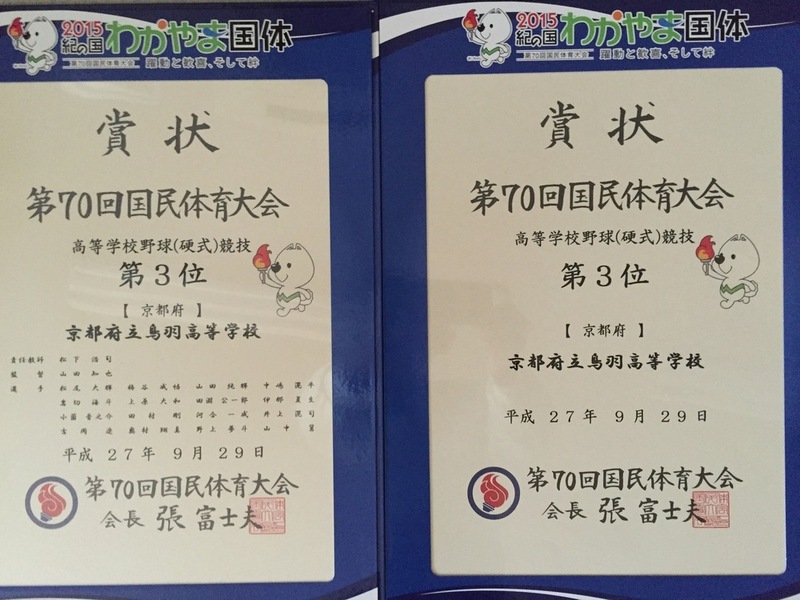 2015
紀の国
わかやま国体
第70回国民体育大会
躍動と歓喜、そして絆
賞状
第70回国民体育大会
高等学校野球(硬式)競技
第3位
【京都府】
京都府立鳥羽高等学校
責任教師 松下 浩司
監督 山田 知也
選手 松尾 大輝 梅谷 成悟 山田 純輝 中嶋
上原 大和 田淵 公一郎 伊那
小薗 晋之介 田村 剛 河合 一成 井上
吉岡 奥村 翔真 野上 夢斗 山中 翼
平成27年9月29日
第70回国民体育大会
会長 張 富士夫
2015
紀の国
わかやま国体
第70回国民体育大会
躍動と歓喜、そして絆
賞状
第70回国民体育大会
高等学校野球(硬式)競技
第3位
【京都府】
京都府立鳥羽高等学校
平成27年9月29日
第70回国民体育大会
会長 張 富士夫